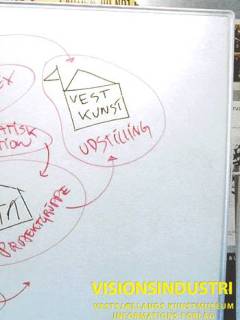 EX
VEST
KUNST
UDSTILLING
ATISK
TION
PROJEKTGRUPPE
VISIONSINDUSTRI
VESTSJÆLLANDS KUNSTMUSEUM
INFORMATIONS FORLAG